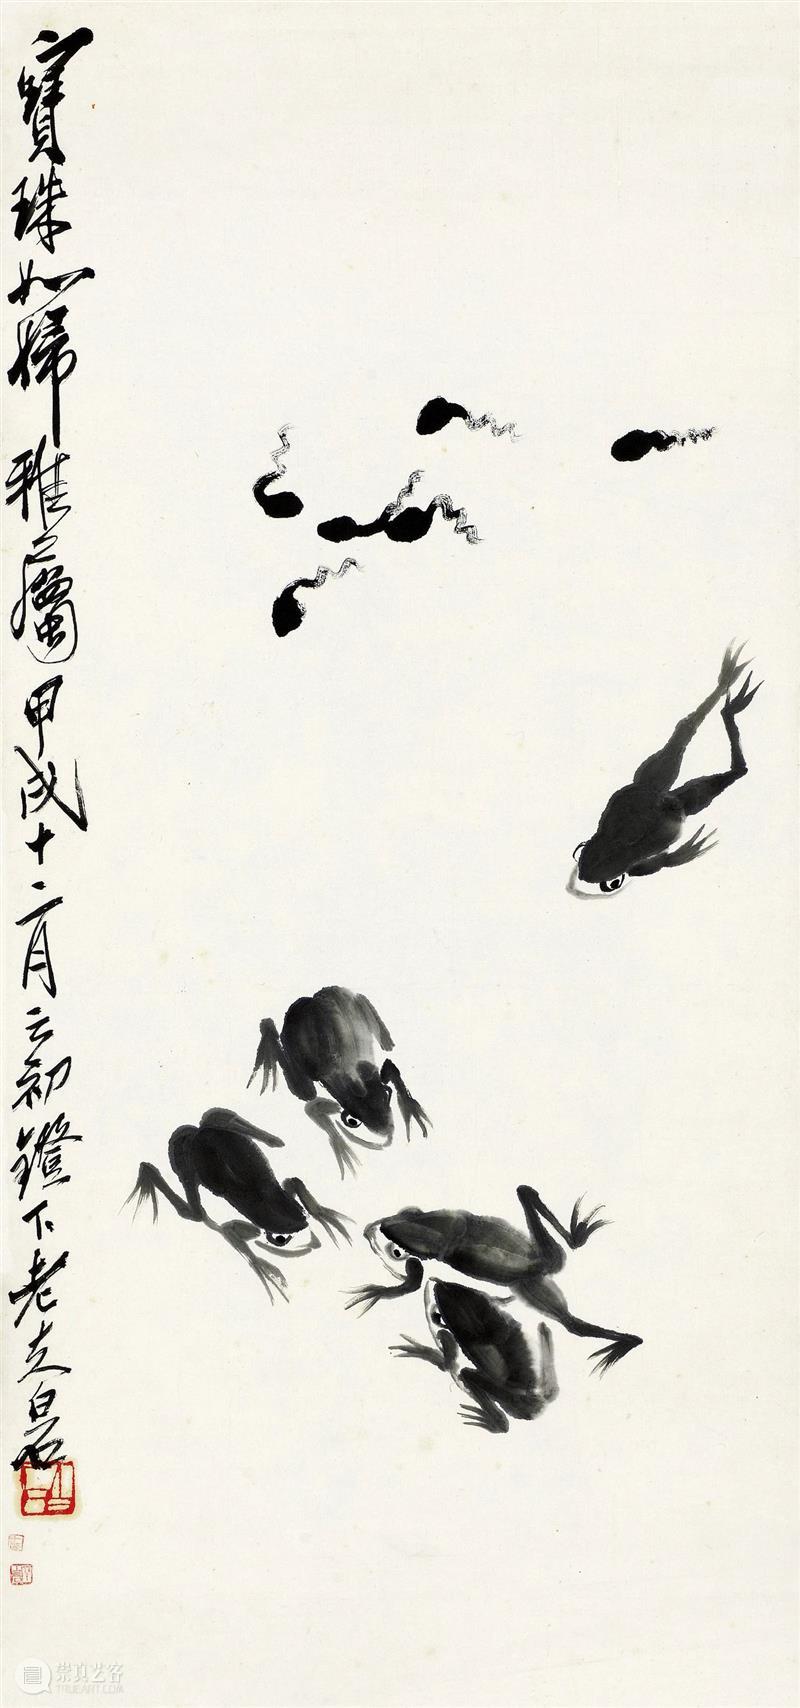 寶珠如婦雅屬甲戌十二月之初鐙下老夫白石
崇真艺客
TRUEART.COM